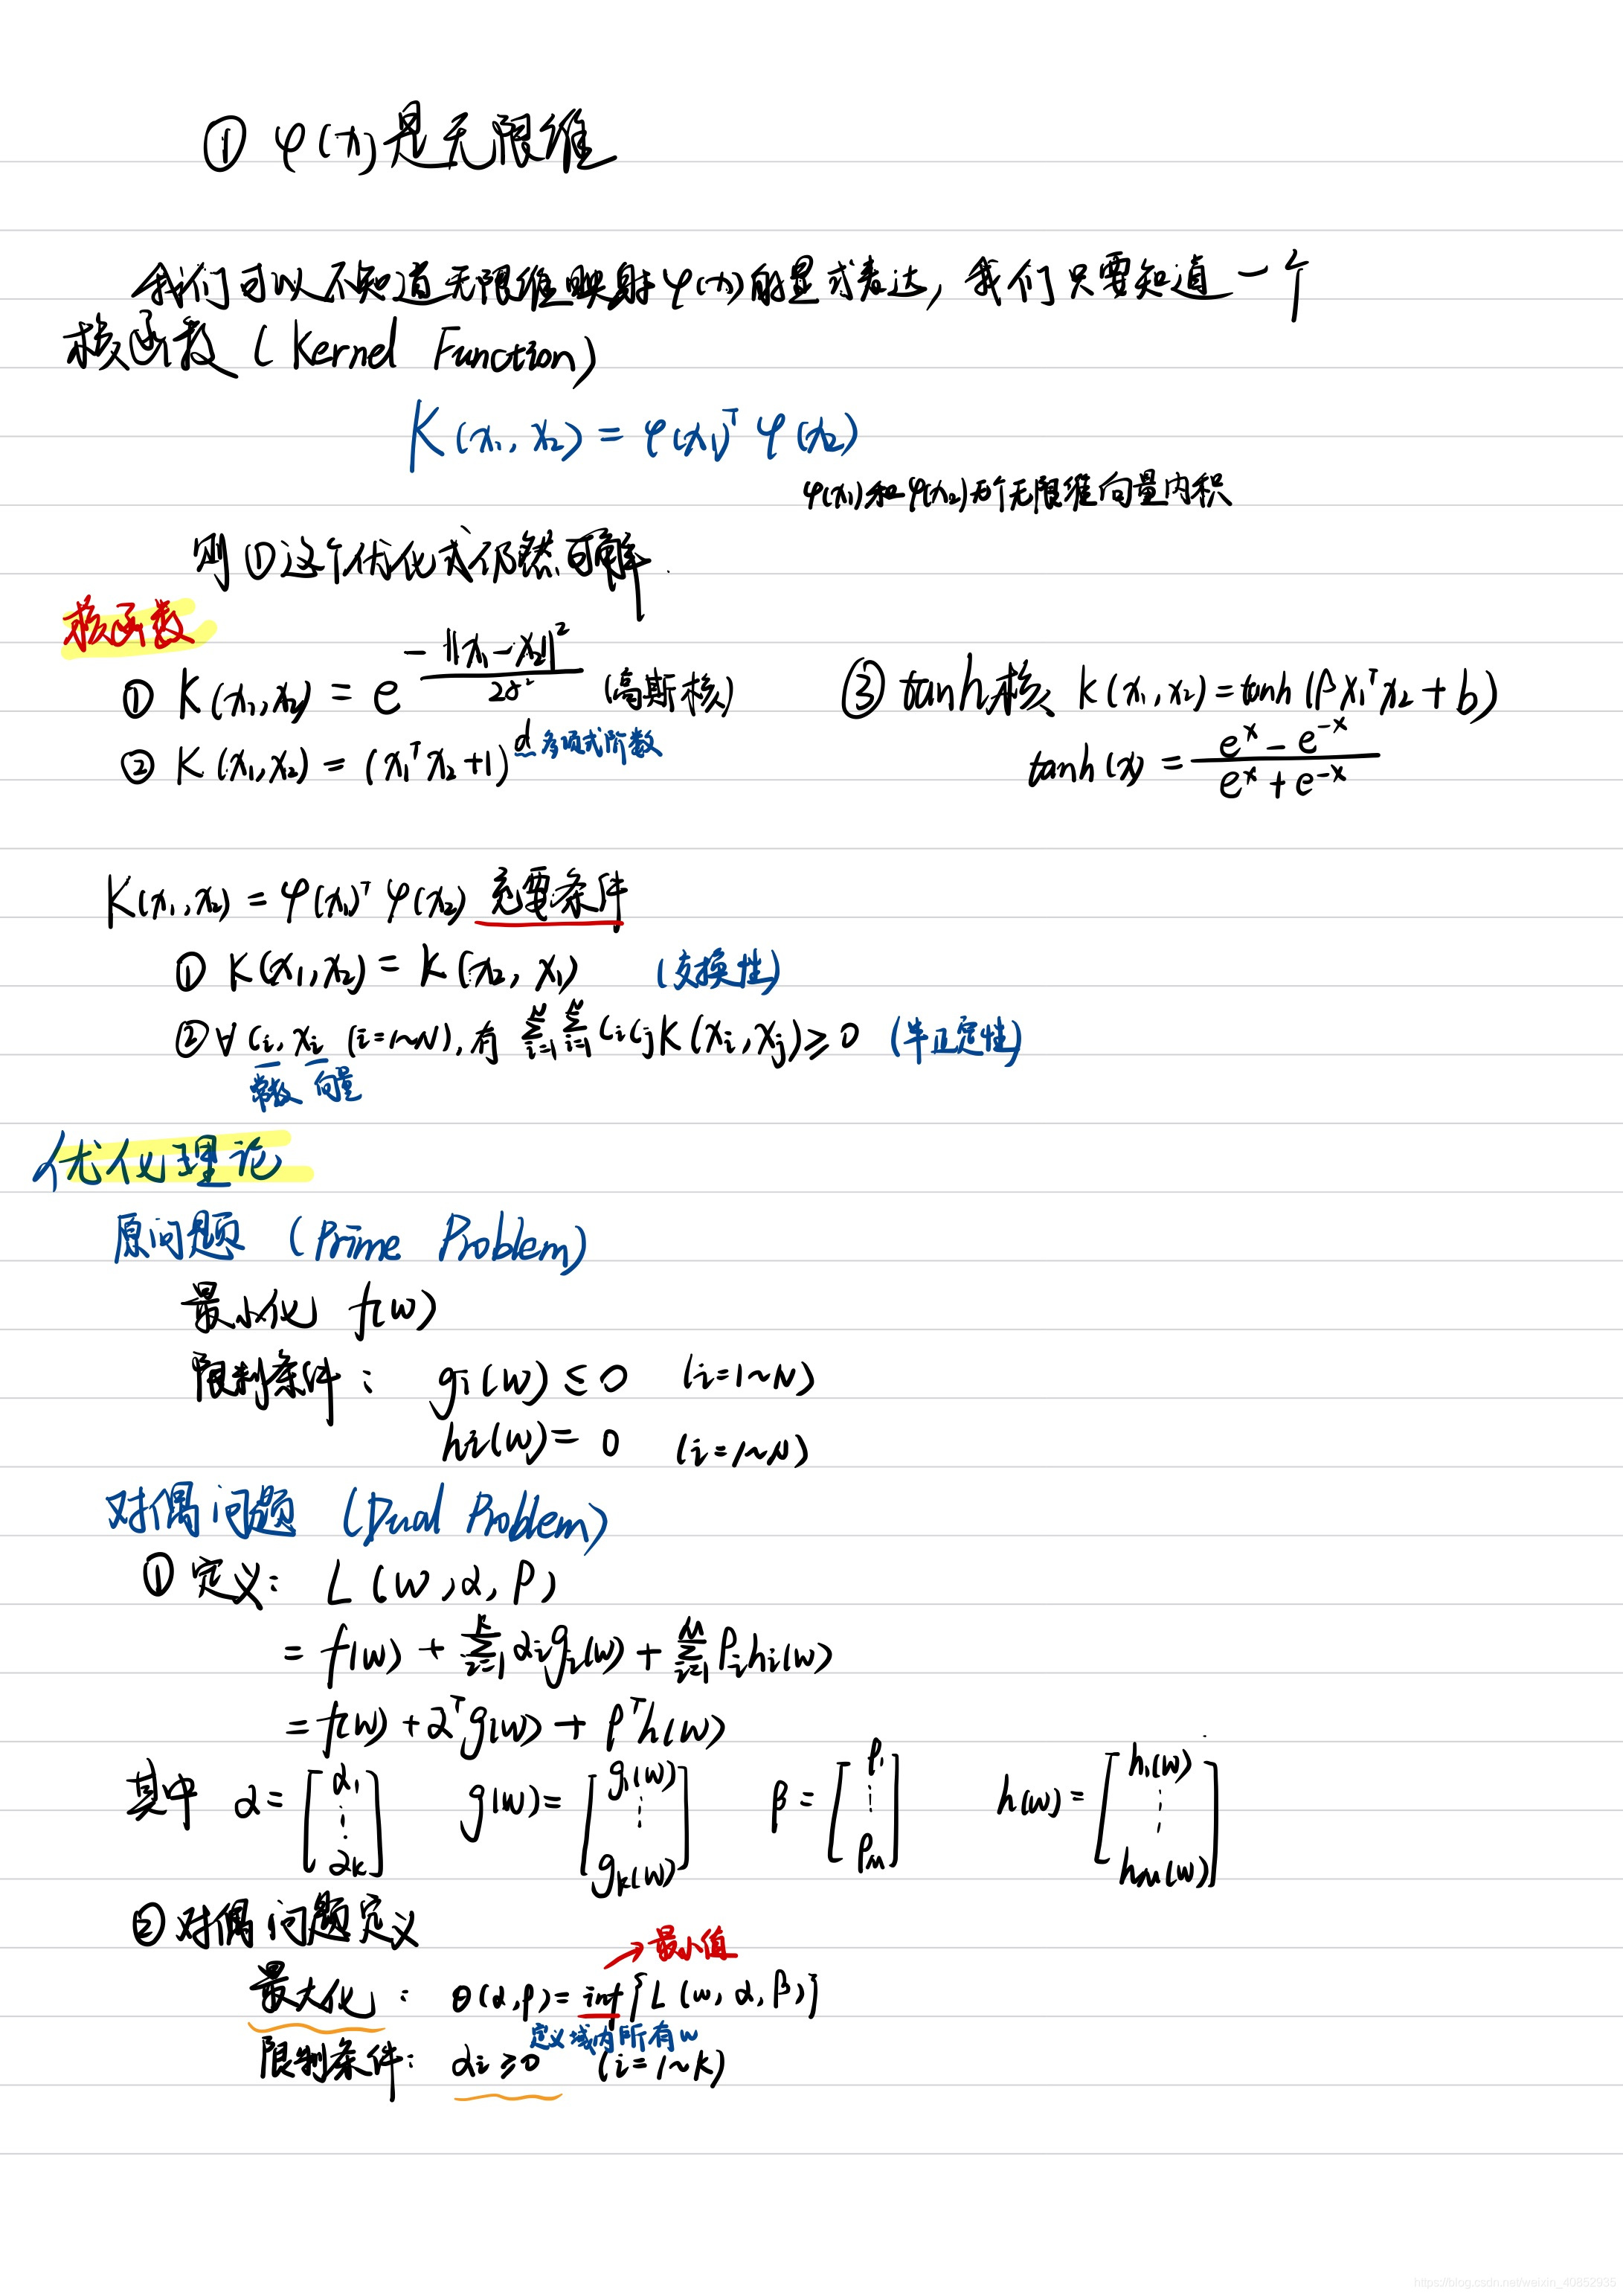 ① φ(x)是无限维
我们可以不知道无限维映射φ(x)的显式表达，我们只要知道一个
核函数 (Kernel Function)
K(x₁, x₂) = φ(x₁)ᵀ φ(x₂)
φ(x₁)和φ(x₂)两个无限维向量内积
则①这个优化式仍然可解.
核函数
① K(x₁,x₂) = e^(-||x₁-x₂||²/2σ²) (高斯核)
② K(x₁,x₂) = (x₁ᵀx₂+1)^d 多项式阶数
③ tanh核 K(x₁,x₂)=tanh(βx₁ᵀx₂+b)
tanh(x) = (eˣ-e⁻ˣ)/(eˣ+e⁻ˣ)
K(x₁,x₂) = φ(x₁)ᵀ φ(x₂) 充要条件
① K(x₁,x₂) = K(x₂,x₁) (交换性)
② ∀ Cᵢ, xᵢ (i=1~N), 有 ∑ᵢ₌₁ᴺ ∑ᵢ₌₁ᴺ CᵢCⱼK(xᵢ,xⱼ) ≥ 0 (半正定性)
常数 向量
优化理论
原问题 (Prime Problem)
最小化 f(w)
限制条件: gᵢ(w) ≤ 0 (i=1~N)
hᵢ(w) = 0 (i=1~N)
对偶问题 (Dual Problem)
① 定义: L(w,α,β)
= f(w) + ∑ᵢ₌₁ᴷ αᵢgᵢ(w) + ∑ᵢ₌₁ᴹ βᵢhᵢ(w)
= f(w) + αᵀg(w) + βᵀh(w)
其中 α = [α₁ ⋮ αₖ] g(w) = [g₁(w) ⋮ gₖ(w)] β = [β₁ ⋮ βₘ] h(w) = [h₁(w) ⋮ hₘ(w)]
② 对偶问题定义
→最小值
最大化: θ(α,β) = inf{L(w,α,β)}
定义域内所有w
限制条件: αᵢ ≥ 0 (i=1~K)
https://blog.csdn.net/weixin_40852935